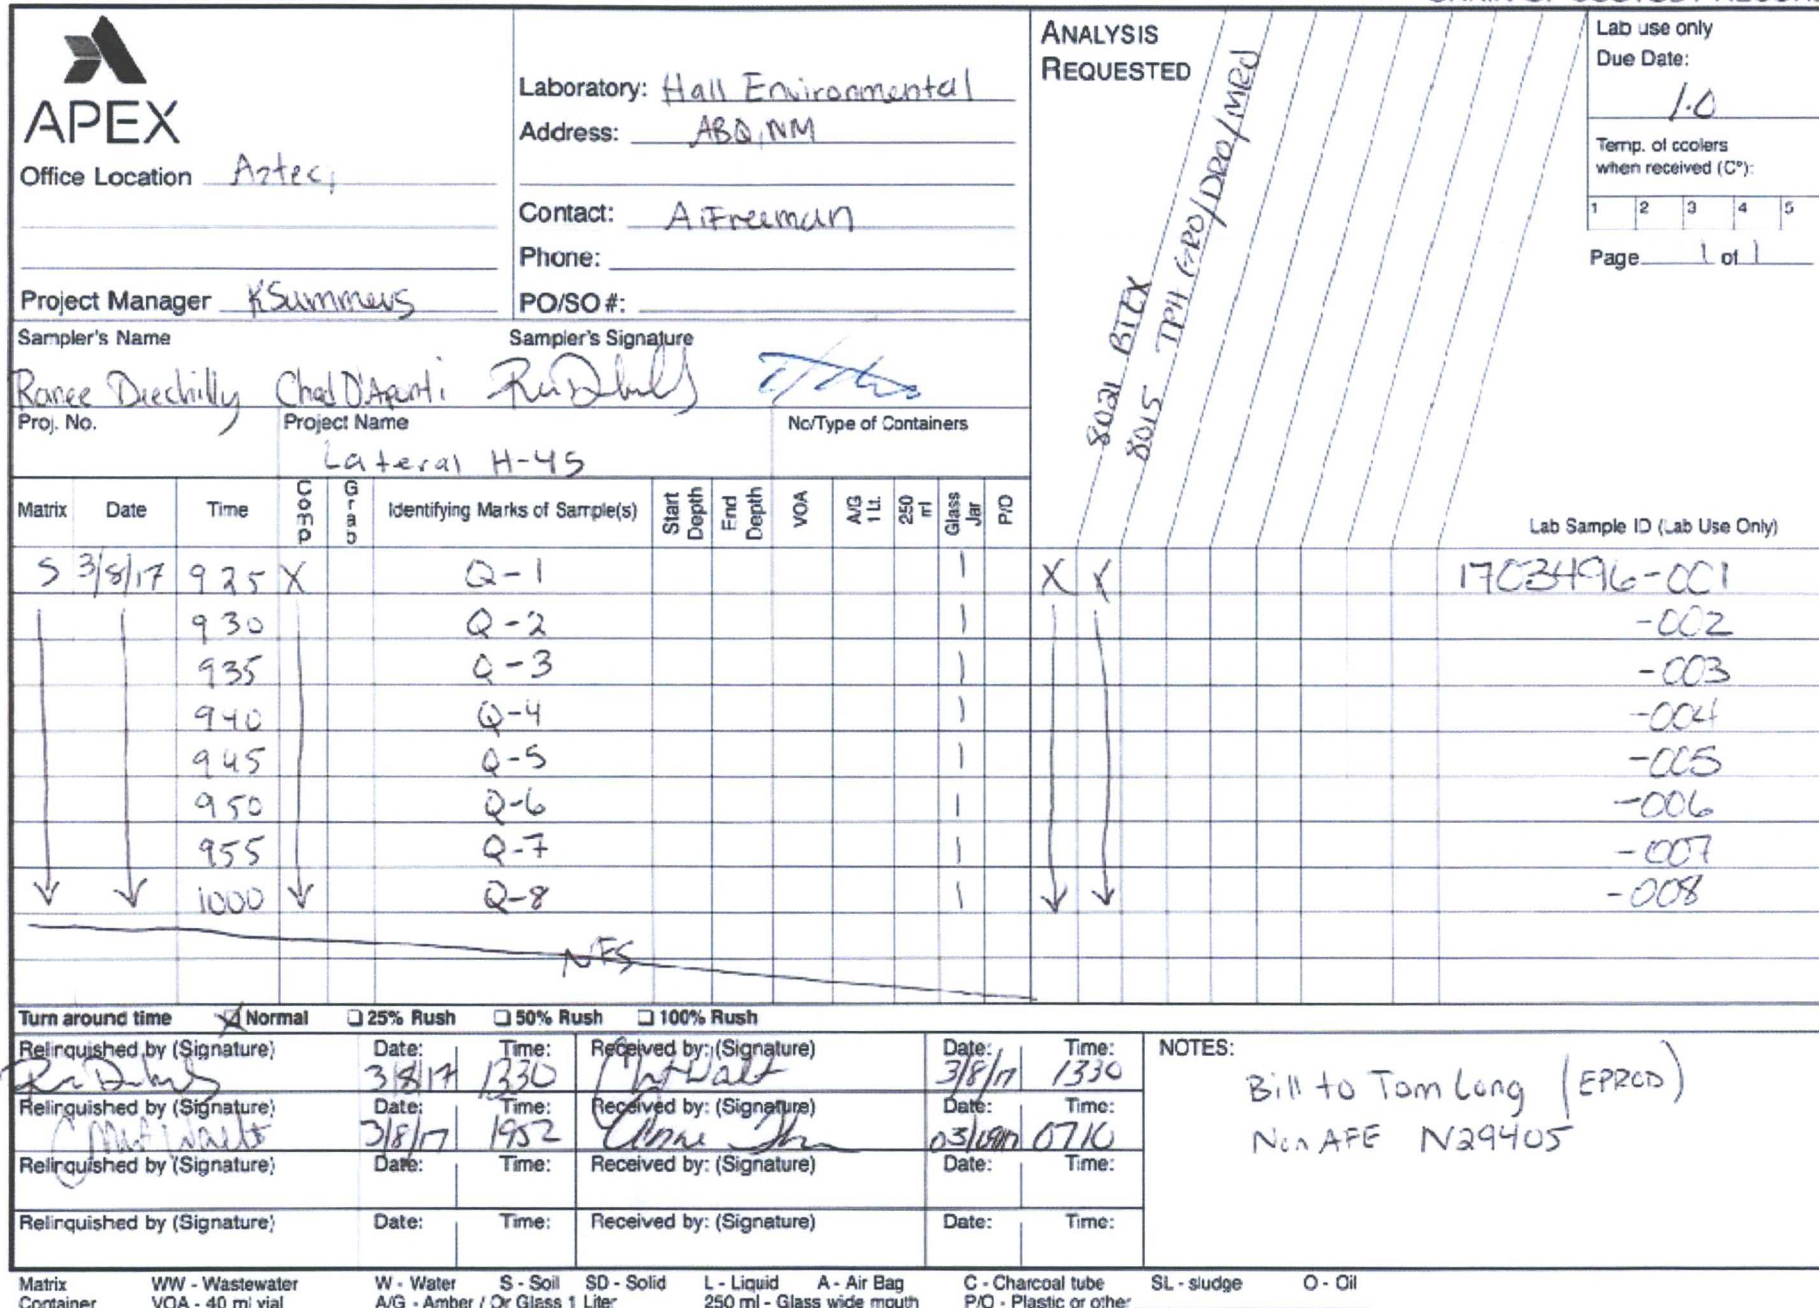 APEX
Office Location Aztec,
Project Manager K Summers
Laboratory: Hall Environmental
Address: ABQ, NM
Contact: A. Freeman
Phone:
PO/SO #:
ANALYSIS
REQUESTED
8021 BTEX
8015 TPH GRO/DRO/MRO
Lab use only
Due Date:
1.0
Temp. of coolers
when received (C°):
1 2 3 4 5
Page 1 of 1
Sampler's Name Sampler's Signature
Ranee Deechilly Chad D'Aponti
Proj. No. Project Name No/Type of Containers
Lateral H-45
Matrix Date Time Comp Grab Identifying Marks of Sample(s) Start Depth End Depth VOA A/G 1 Lt. 250 ml Glass Jar P/O Lab Sample ID (Lab Use Only)
S 3/8/17 925 X Q-1 1 X X 1703496-001
930 Q-2 1 -002
935 Q-3 1 -003
940 Q-4 1 -004
945 Q-5 1 -005
950 Q-6 1 -006
955 Q-7 1 -007
1000 Q-8 1 -008
NFS
Turn around time X Normal 25% Rush 50% Rush 100% Rush
Relinquished by (Signature) Date: Time: Received by: (Signature) Date: Time:
3/8/17 1330 3/8/17 1330
Relinquished by (Signature) Date: Time: Received by: (Signature) Date: Time:
3/8/17 1952 0710
Relinquished by (Signature) Date: Time: Received by: (Signature) Date: Time:
Relinquished by (Signature) Date: Time: Received by: (Signature) Date: Time:
NOTES:
Bill to Tom Long (EPROD)
Non AFE N29405
Matrix WW - Wastewater W - Water S - Soil SD - Solid L - Liquid A - Air Bag C - Charcoal tube SL - sludge O - Oil
Container VOA - 40 ml vial A/G - Amber / Or Glass 1 Liter 250 ml - Glass wide mouth P/O - Plastic or other